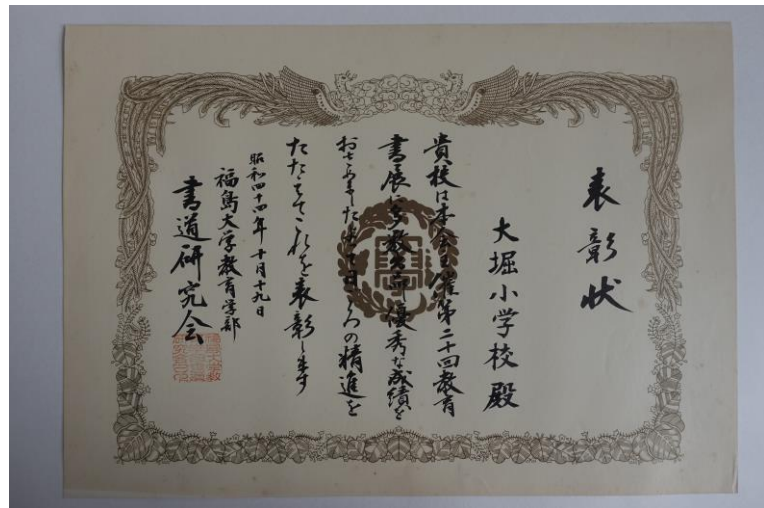 表彰状
大堀小学校殿
貴校は本会主催第二十回教育
書展に多数出品優秀な成績を
おさめましたよって日ごろの精進を
たたえてこれを表彰します
昭和四十四年十月十九日
福島大学教育学部
書道研究会